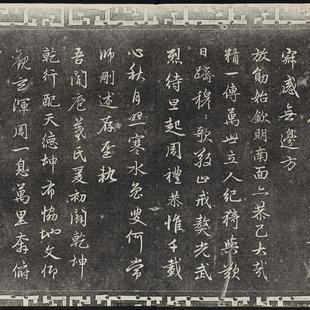 寂感無邊方
放勛始欽明南面亦恭己大哉
精一傳萬世立人紀猗歟歎
日躋穆穆歌敬止戒獒光武
烈待旦起周禮恭惟千載
心秋月照寒水魯叟何常
師刪述存聖軌
吾聞庖羲氏爰初闢乾坤
乾行配天德坤布協地文仰
觀玄渾周一息萬里奔俯